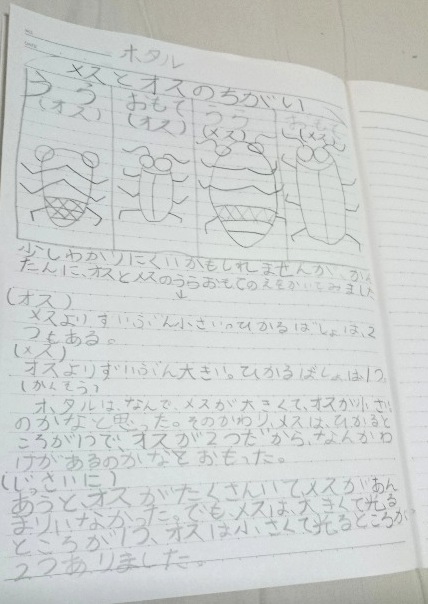 ホタル
メスとオスのちがい
うら
(オス)
おもて
(オス)
うら
(メス)
おもて
(メス)
少しわかりにくいかもしれませんが、かん
たんに、オスとメスのうらおもてのえをかいてみました
↓
(オス)
メスよりずいぶん小さい。ひかるばしょは、2
つもある。
(メス)
オスよりずいぶん大きい。ひかるばしょは1つ。
(かんそう)
ホタルは、なんで、メスが大きくて、オスが小さい
のかなと思った。そのかわり、メスは、ひかると
ころが1つで、オスが2つだから、なんかわ
けがあるのかなとおもった。
(じっさいに)
あうと、オスがたくさんいて、メスがあん
まりいなかった。でも、メスは、大きくて光る
ところが1つ、オスは小さくて光るところが、
2つありました。